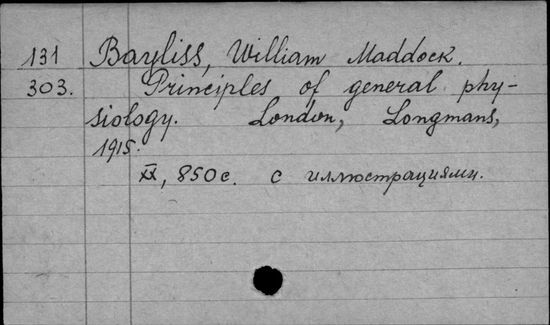 131 Bayliss, William Maddock.
303. Principles of general phy-
siology. London, Longmans,
1915.
XX, 850 с. с иллюстрациями.